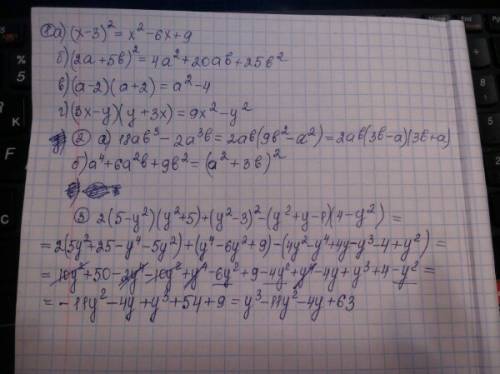 1 а) (x-3)² = x²-6x+9
б) (2a+5b)² = 4a²+20ab+25b²
в) (a-2)(a+2) = a²-4
г) (3x-y)(y+3x) = 9x²-y²
2 а) 18ab³-2a³b = 2ab(9b²-a²) = 2ab(3b-a)(3b+a)
б) a⁴+6a²b+9b² = (a²+3b)²
3 2(5-y²)(y²+5)+(y²-3)²-(y²+y-1)(4-y²) =
= 2(5y²+25-y⁴-5y²)+(y⁴-6y²+9)-(4y²-y⁴+4y-y³-4+y²) =
= 10y²+50-2y⁴-10y²+y⁴-6y²+9-4y²+y⁴-4y+y³+4-y² =
= -11y²-4y+y³+54+9 = y³-11y²-4y+63